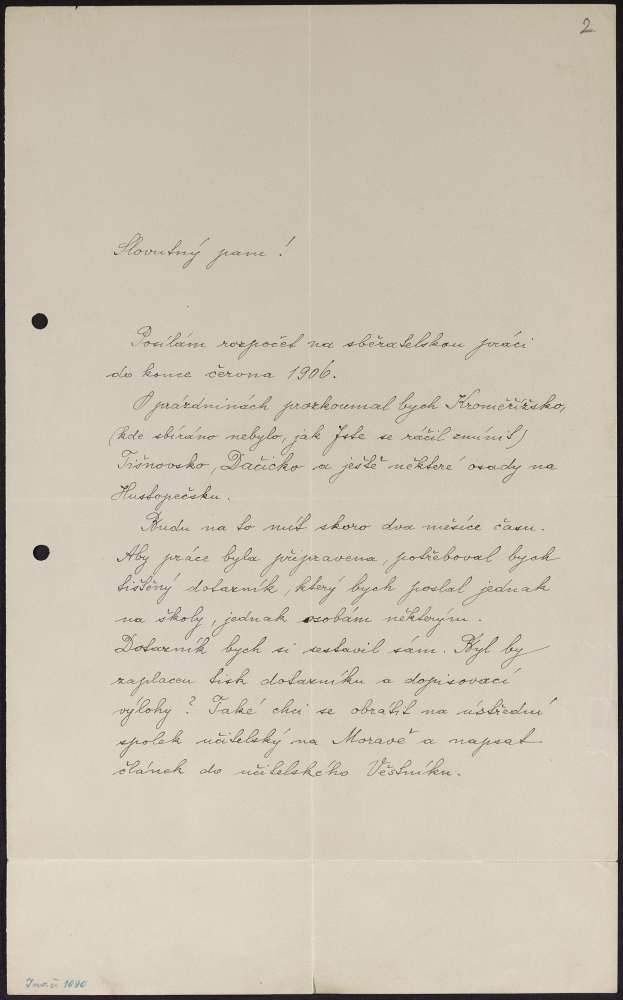 2
Slovutný pane!
Posílám rozpočet na sběratelskou práci
do konce června 1906.
O prázdninách prozkoumal bych Kroměřížsko,
(kde sbíráno nebylo, jak Jste se ráčil zmínit)
Tišnovsko, Dačicko a ještě některé osady na
Hustopečsku.
Budu na to mít skoro dva měsíce času.
Aby práce byla připravena, potřeboval bych
tištěný dotazník, který bych poslal jednak
na školy, jednak osobám některým.
Dotazník bych si sestavil sám. Byl by
zaplacen tisk dotazníku a dopisovací
výlohy? Také chci se obrátit na ústřední
spolek učitelský na Moravě a napsat
článek do učitelského Věstníku.